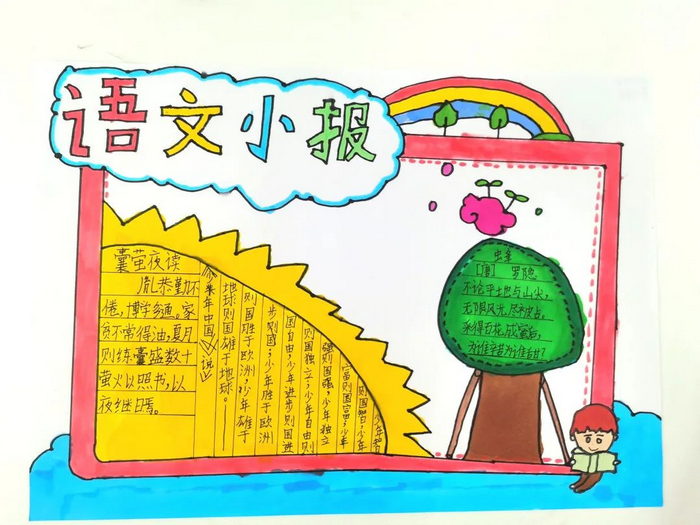 语文小报
囊萤夜读
胤恭勤不
倦,博学多通。家
贫不常得油,夏月
则练囊盛数十
萤火以照书,以
夜继日焉。
年中国说
少年智
则国智;少年
富则国富;少年
强则国强;少年独立
则国独立;少年自由则
国自由;少年进步则国进
步则国;少年胜于欧洲
则国胜于欧洲;少年雄于
地球则国雄于地球。——
[唐] 罗隐
不论平地与山尖,
无限风光尽被占。
采得百花成蜜后,
为谁辛苦为谁甜?